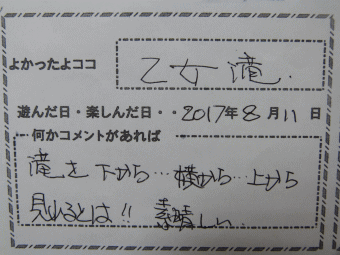 よかったよココ 乙女滝.
遊んだ日・楽しんだ日・・2017年8月11日
何かコメントがあれば
滝を下から…横から…上から
見れるとは!! 素晴しい.